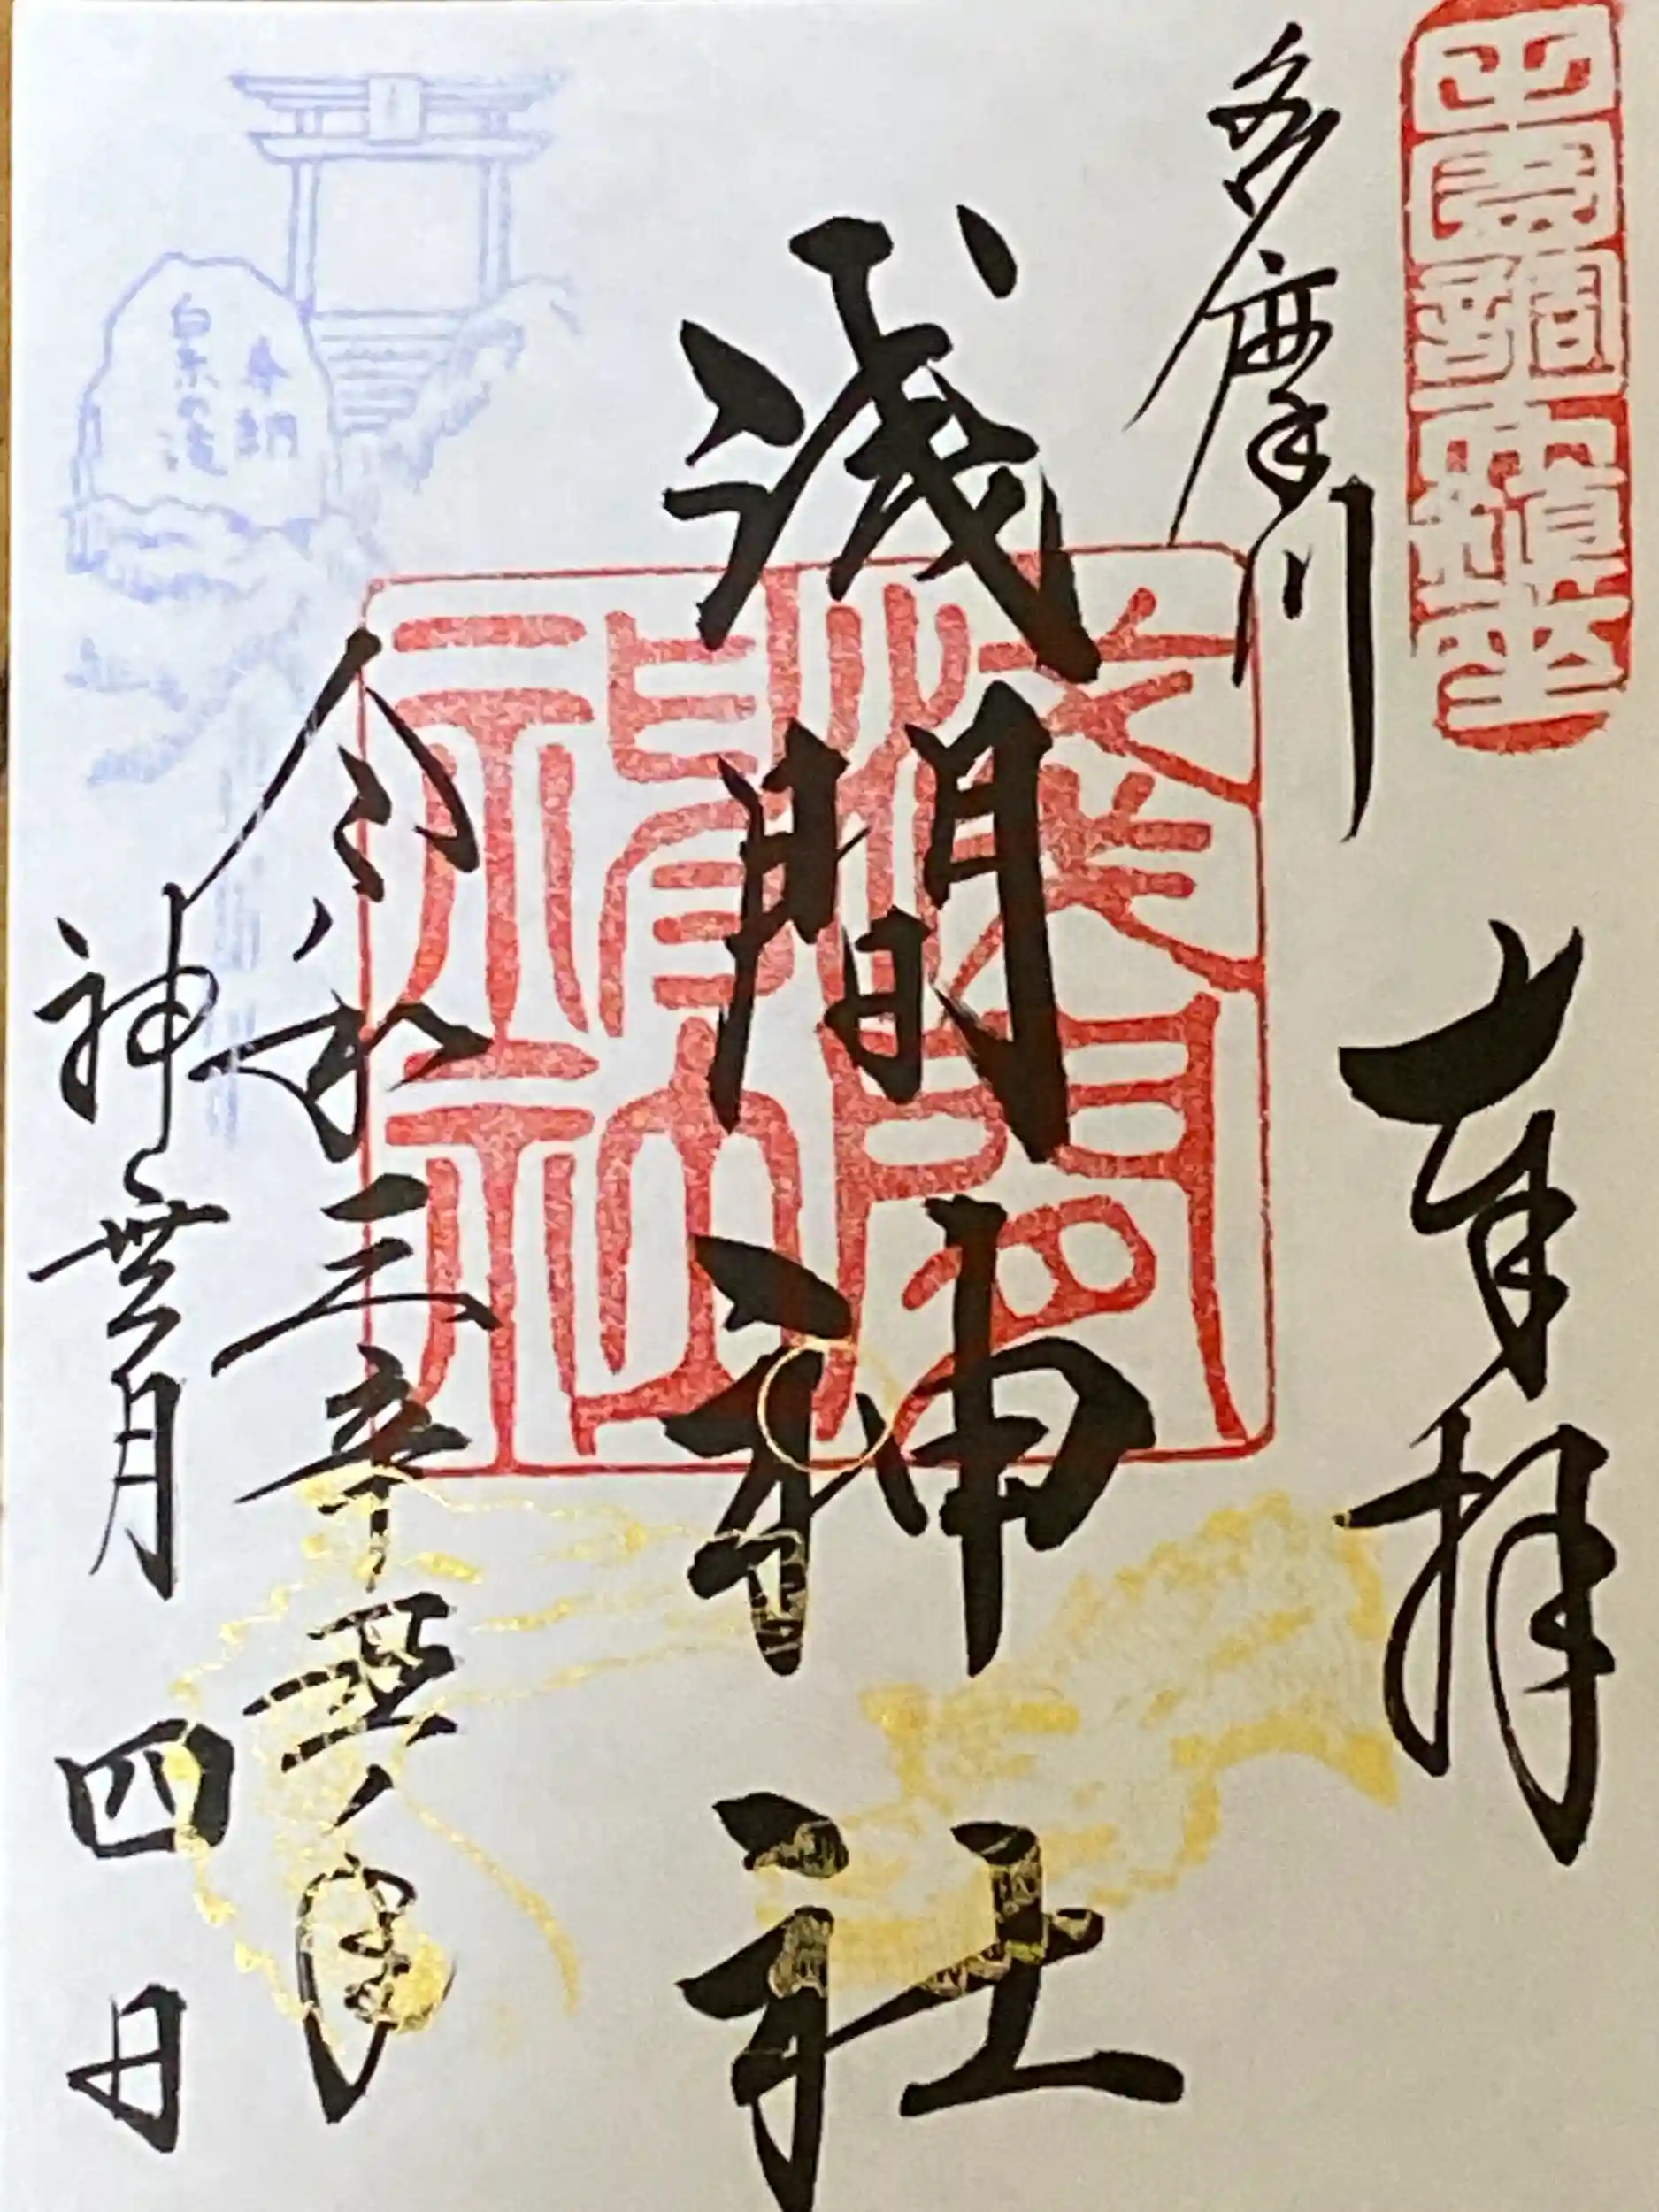 奉拝
多摩川
浅間神社
令和三辛丑年
神無月
四日
奉納
白糸の滝
浅間神社